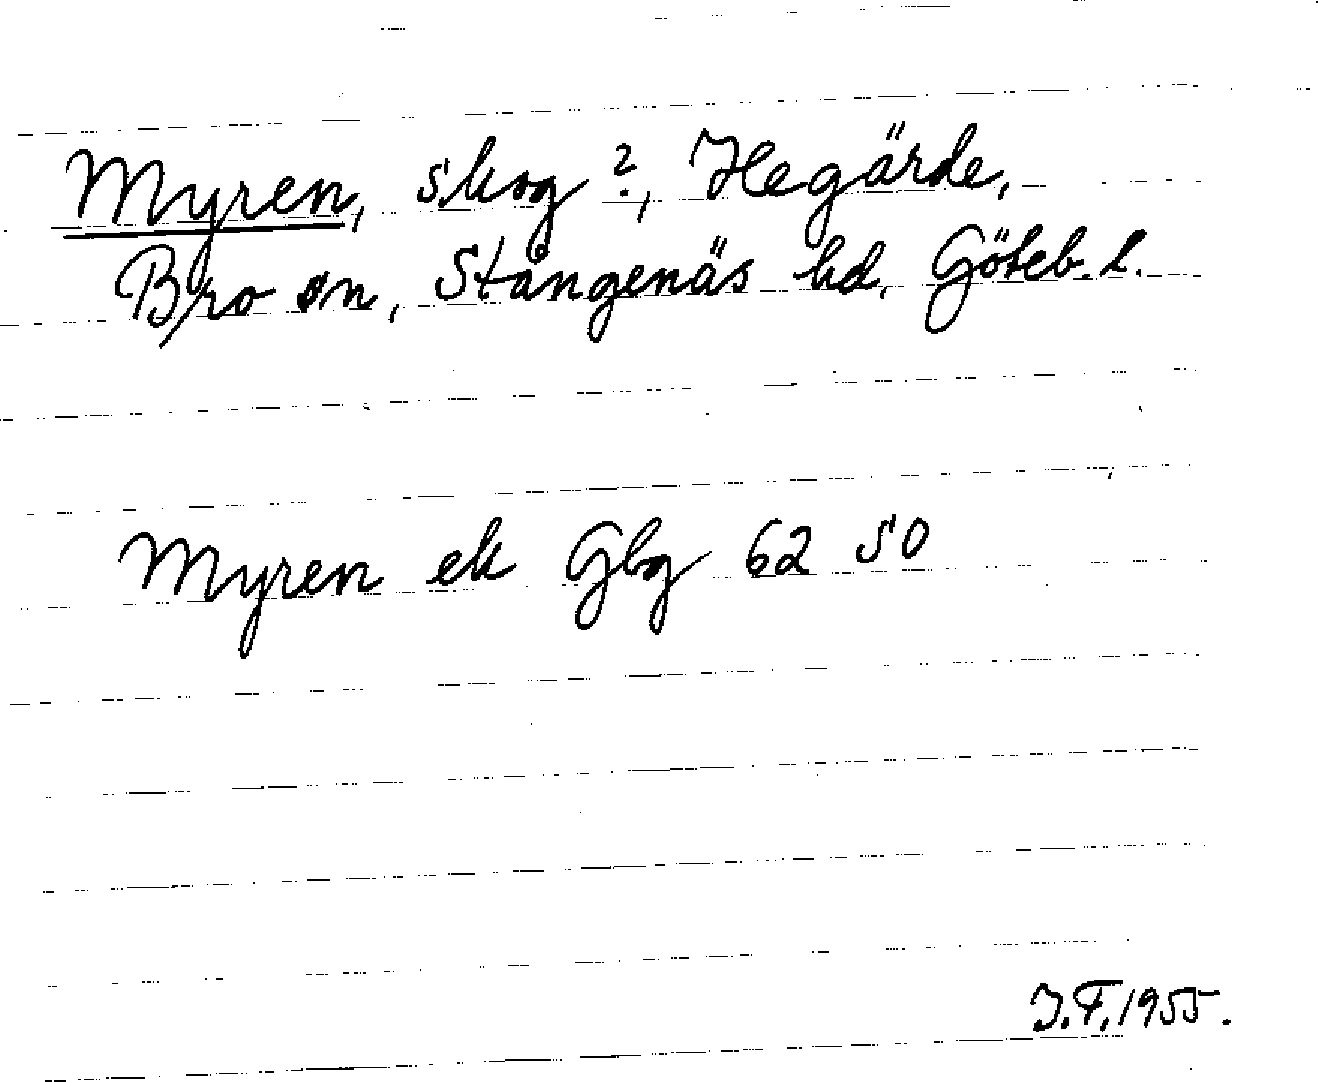 Myren, skog ?, Hegärde,
Bro sn, Stångenäs hd, Göteb. l.
Myren ek Gbg 62 50
J.F. 1955.